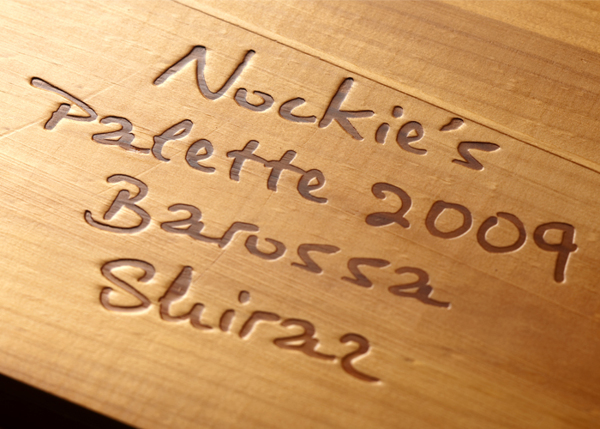 Nockie's
Palette 2009
Barossa
Shiraz